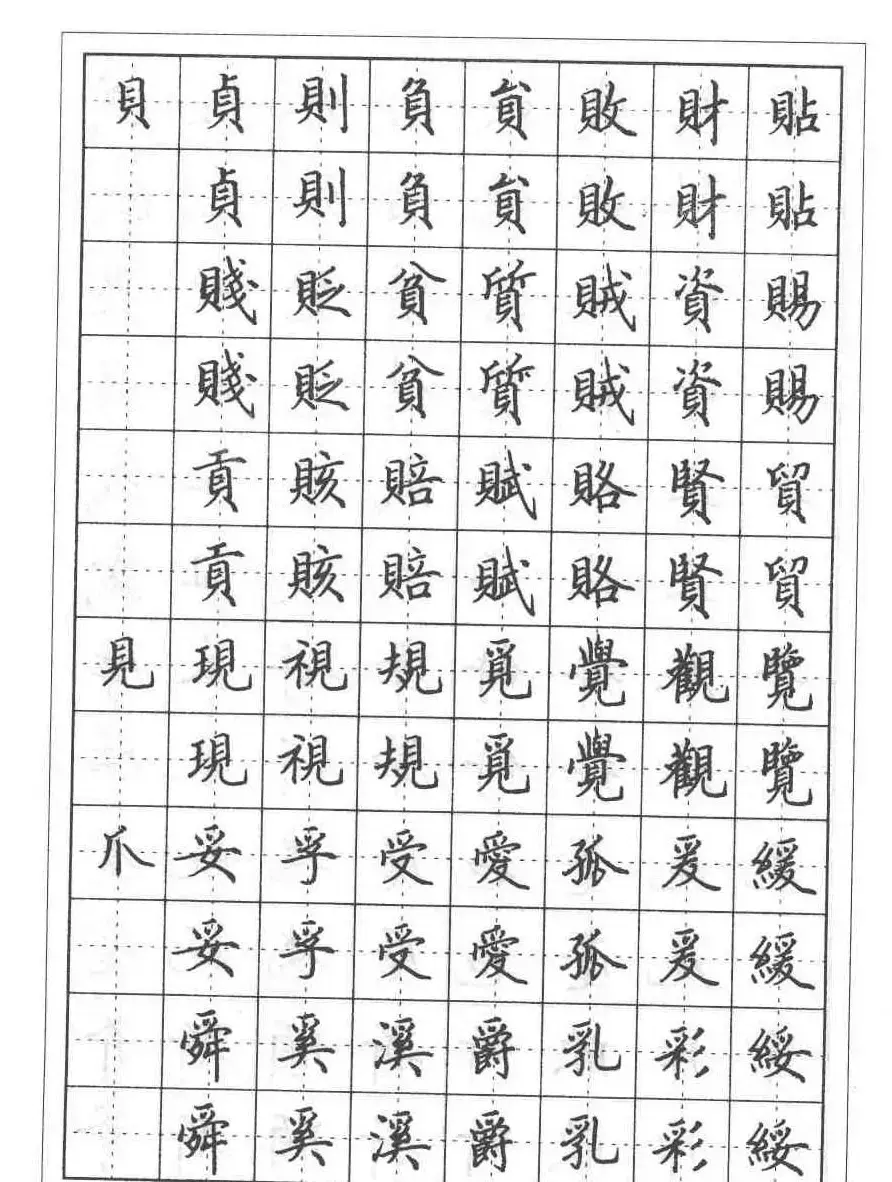 貝 貞 則 負 貟 敗 財 貼
貞 則 負 貟 敗 財 貼
賤 貶 貧 質 賊 資 賜
賤 貶 貧 質 賊 資 賜
貢 賅 賠 賦 賂 賢 貿
貢 賅 賠 賦 賂 賢 貿
見 現 視 規 覓 覺 觀 覽
現 視 規 覓 覺 觀 覽
爪 妥 孚 受 愛 孤 爰 緩
妥 孚 受 愛 孤 爰 緩
舜 奚 溪 爵 乳 彩 綏
舜 奚 溪 爵 乳 彩 綏